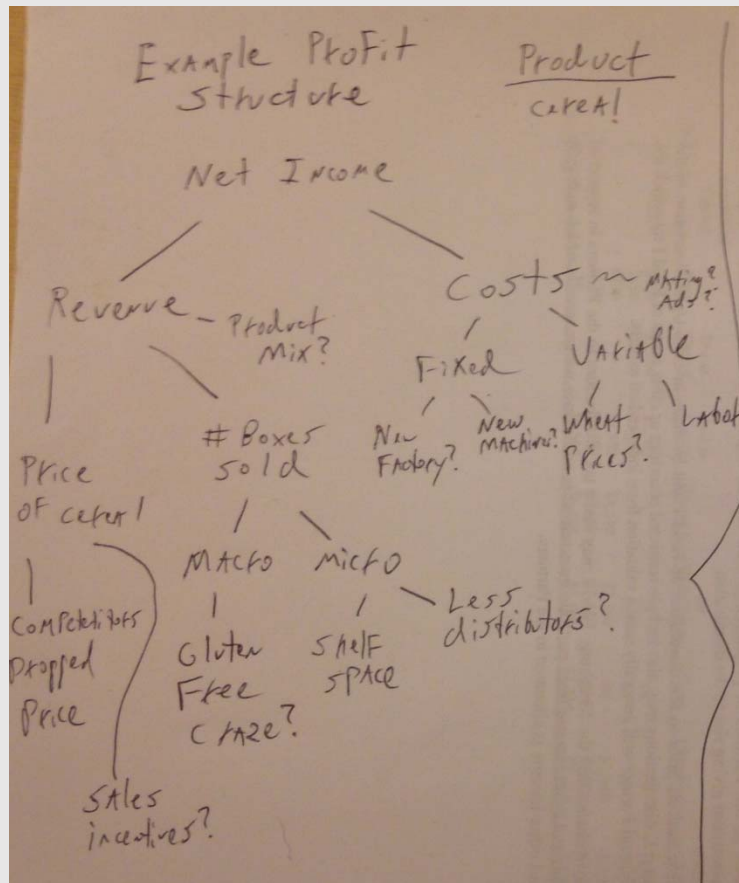 Example Profit
Structure
Product
cereal
Net Income
Revenue
Product
Mix?
Costs
Mkting?
Ads?
Fixed
Variable
New
Factory?
New
Machines?
Wheat
Prices?
Labor
Price
of cereal
# Boxes
sold
Macro
Micro
Competitors
Dropped
Price
Gluten
Free
Craze?
Shelf
Space
Less
distributors?
Sales
incentives?